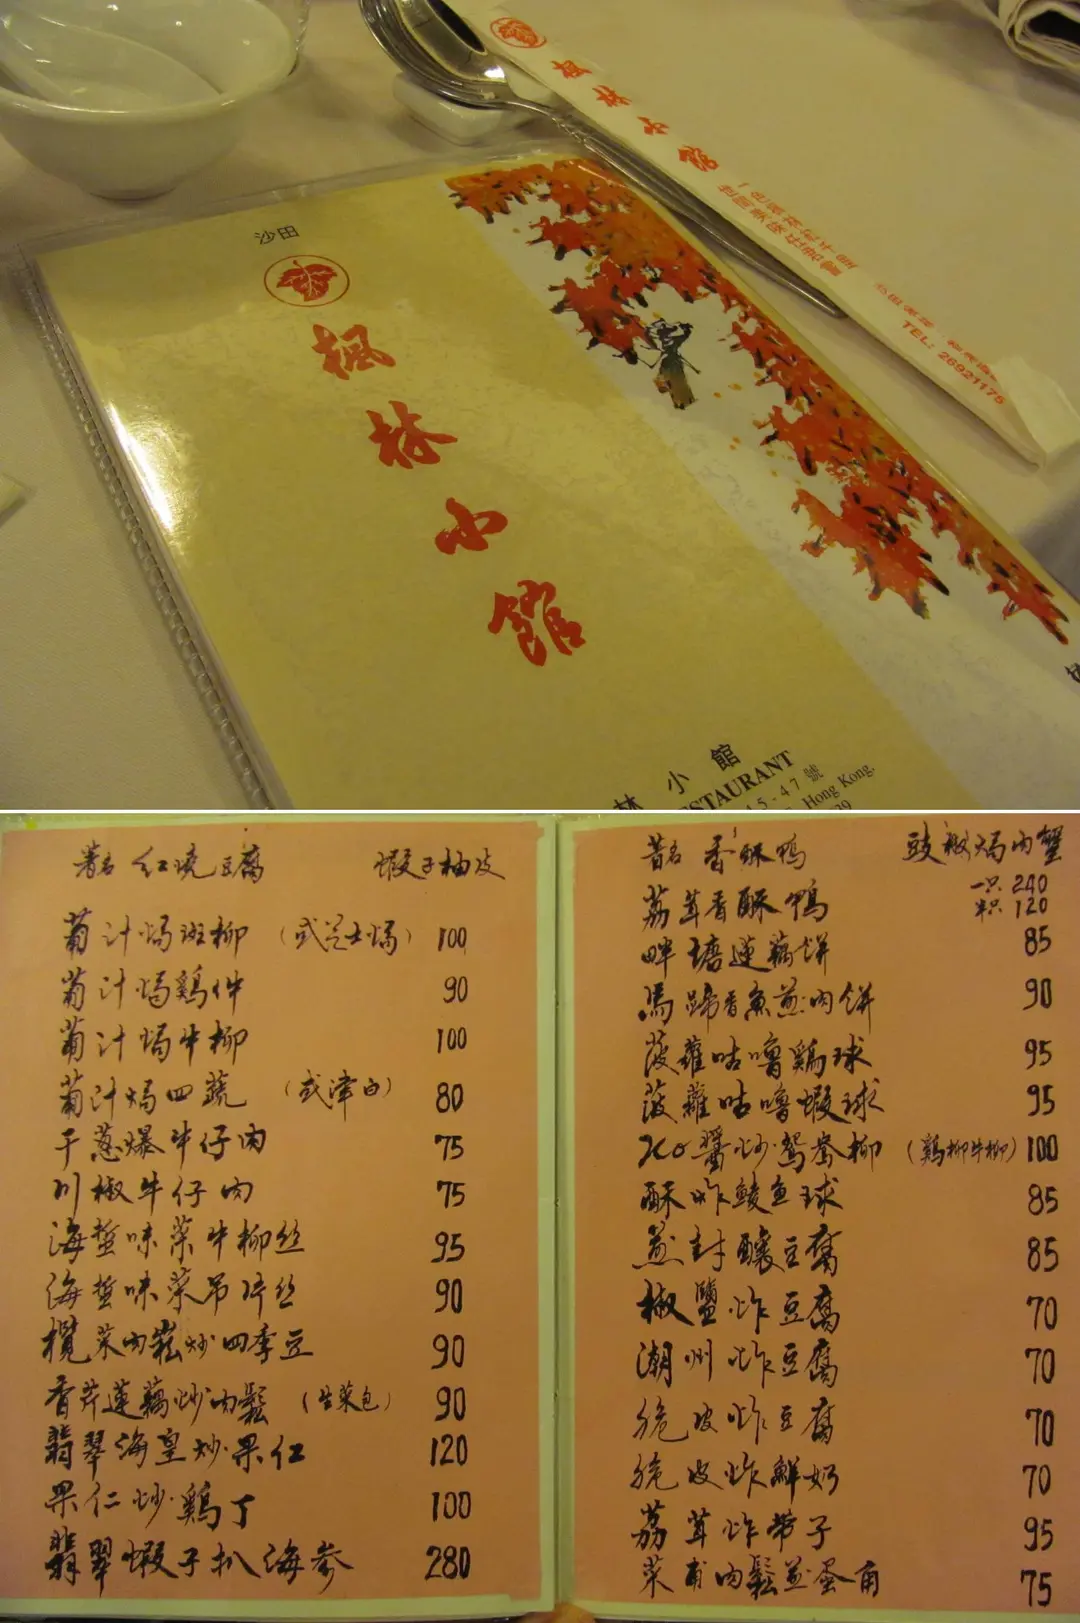 楓林小館
TEL: 26921175
沙田
楓
林
小
館
林小館
STAURANT
5-47號
Hong Kong.
著名 紅燒豆腐 蝦子柚皮
葡汁焗斑柳 (或芝士焗) 100
葡汁焗鷄件 90
葡汁焗牛柳 100
葡汁焗四蔬 (或津白) 80
干葱爆牛仔肉 75
川椒牛仔肉 75
海蜇味菜牛柳丝 95
海蜇味菜吊片丝 90
欖菜肉崧炒四季豆 90
香芹蓮藕炒肉鬆 (生菜包) 90
翡翠海皇炒果仁 120
果仁炒鷄丁 100
翡翠蝦子扒海参 280
著名 香酥鴨 豉椒焗肉蟹
一只 240
半只 120
荔茸香酥鴨
畔塘蓮藕餅 85
馬蹄香魚煎肉餅 90
菠蘿咕嚕鷄球 95
菠蘿咕嚕蝦球 95
XO醬炒鴛鴦柳 (鷄柳牛柳) 100
酥炸鲮鱼球 85
煎封釀豆腐 85
椒鹽炸豆腐 70
潮州炸豆腐 70
脆皮炸豆腐 70
脆皮炸鮮奶 70
荔茸炸带子 95
菜甫肉鬆煎蛋角 75